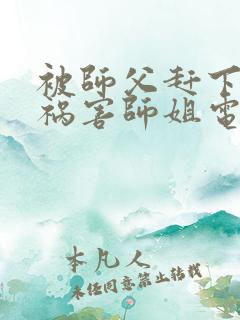 被師父赶下
祸害師姐電
本凡人
未经同意禁止转载